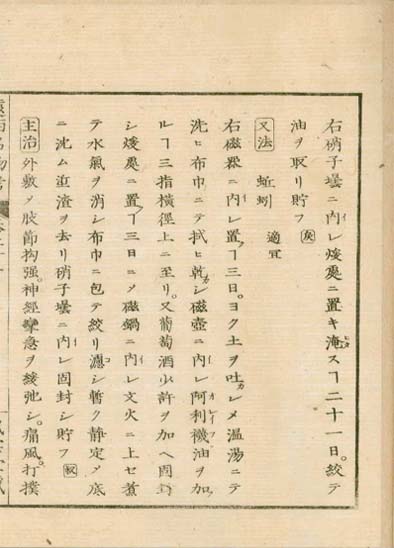 右硝子壜ニ内レ煖処ニ置キ淹スヿ二十一日。絞テ
油ヲ取リ貯フ
又法 蚯蚓 適宜
右磁器ニ内レ置ヿ三日。ヨク土ヲ吐シメ温湯ニテ
洗ヒ布巾ニテ拭ヒ乾シ磁壺ニ内レ阿利襪油ヲ加
ルヿ三指横徑上ニ至リ。又葡萄酒少許ヲ加ヘ固封
シ煖処ニ置ヿ三日ニメ磁鍋ニ内レ文火ニ上セ煮
テ水氣ヲ消シ布巾ニ包テ絞リ濾シ暫ク静定メ底
ニ沈ム渣ヲ去リ硝子壜ニ内レ固封シ貯フ
主治 外敷メ肢節拘强。神經攣急ヲ緩弛シ。痛風。打撲